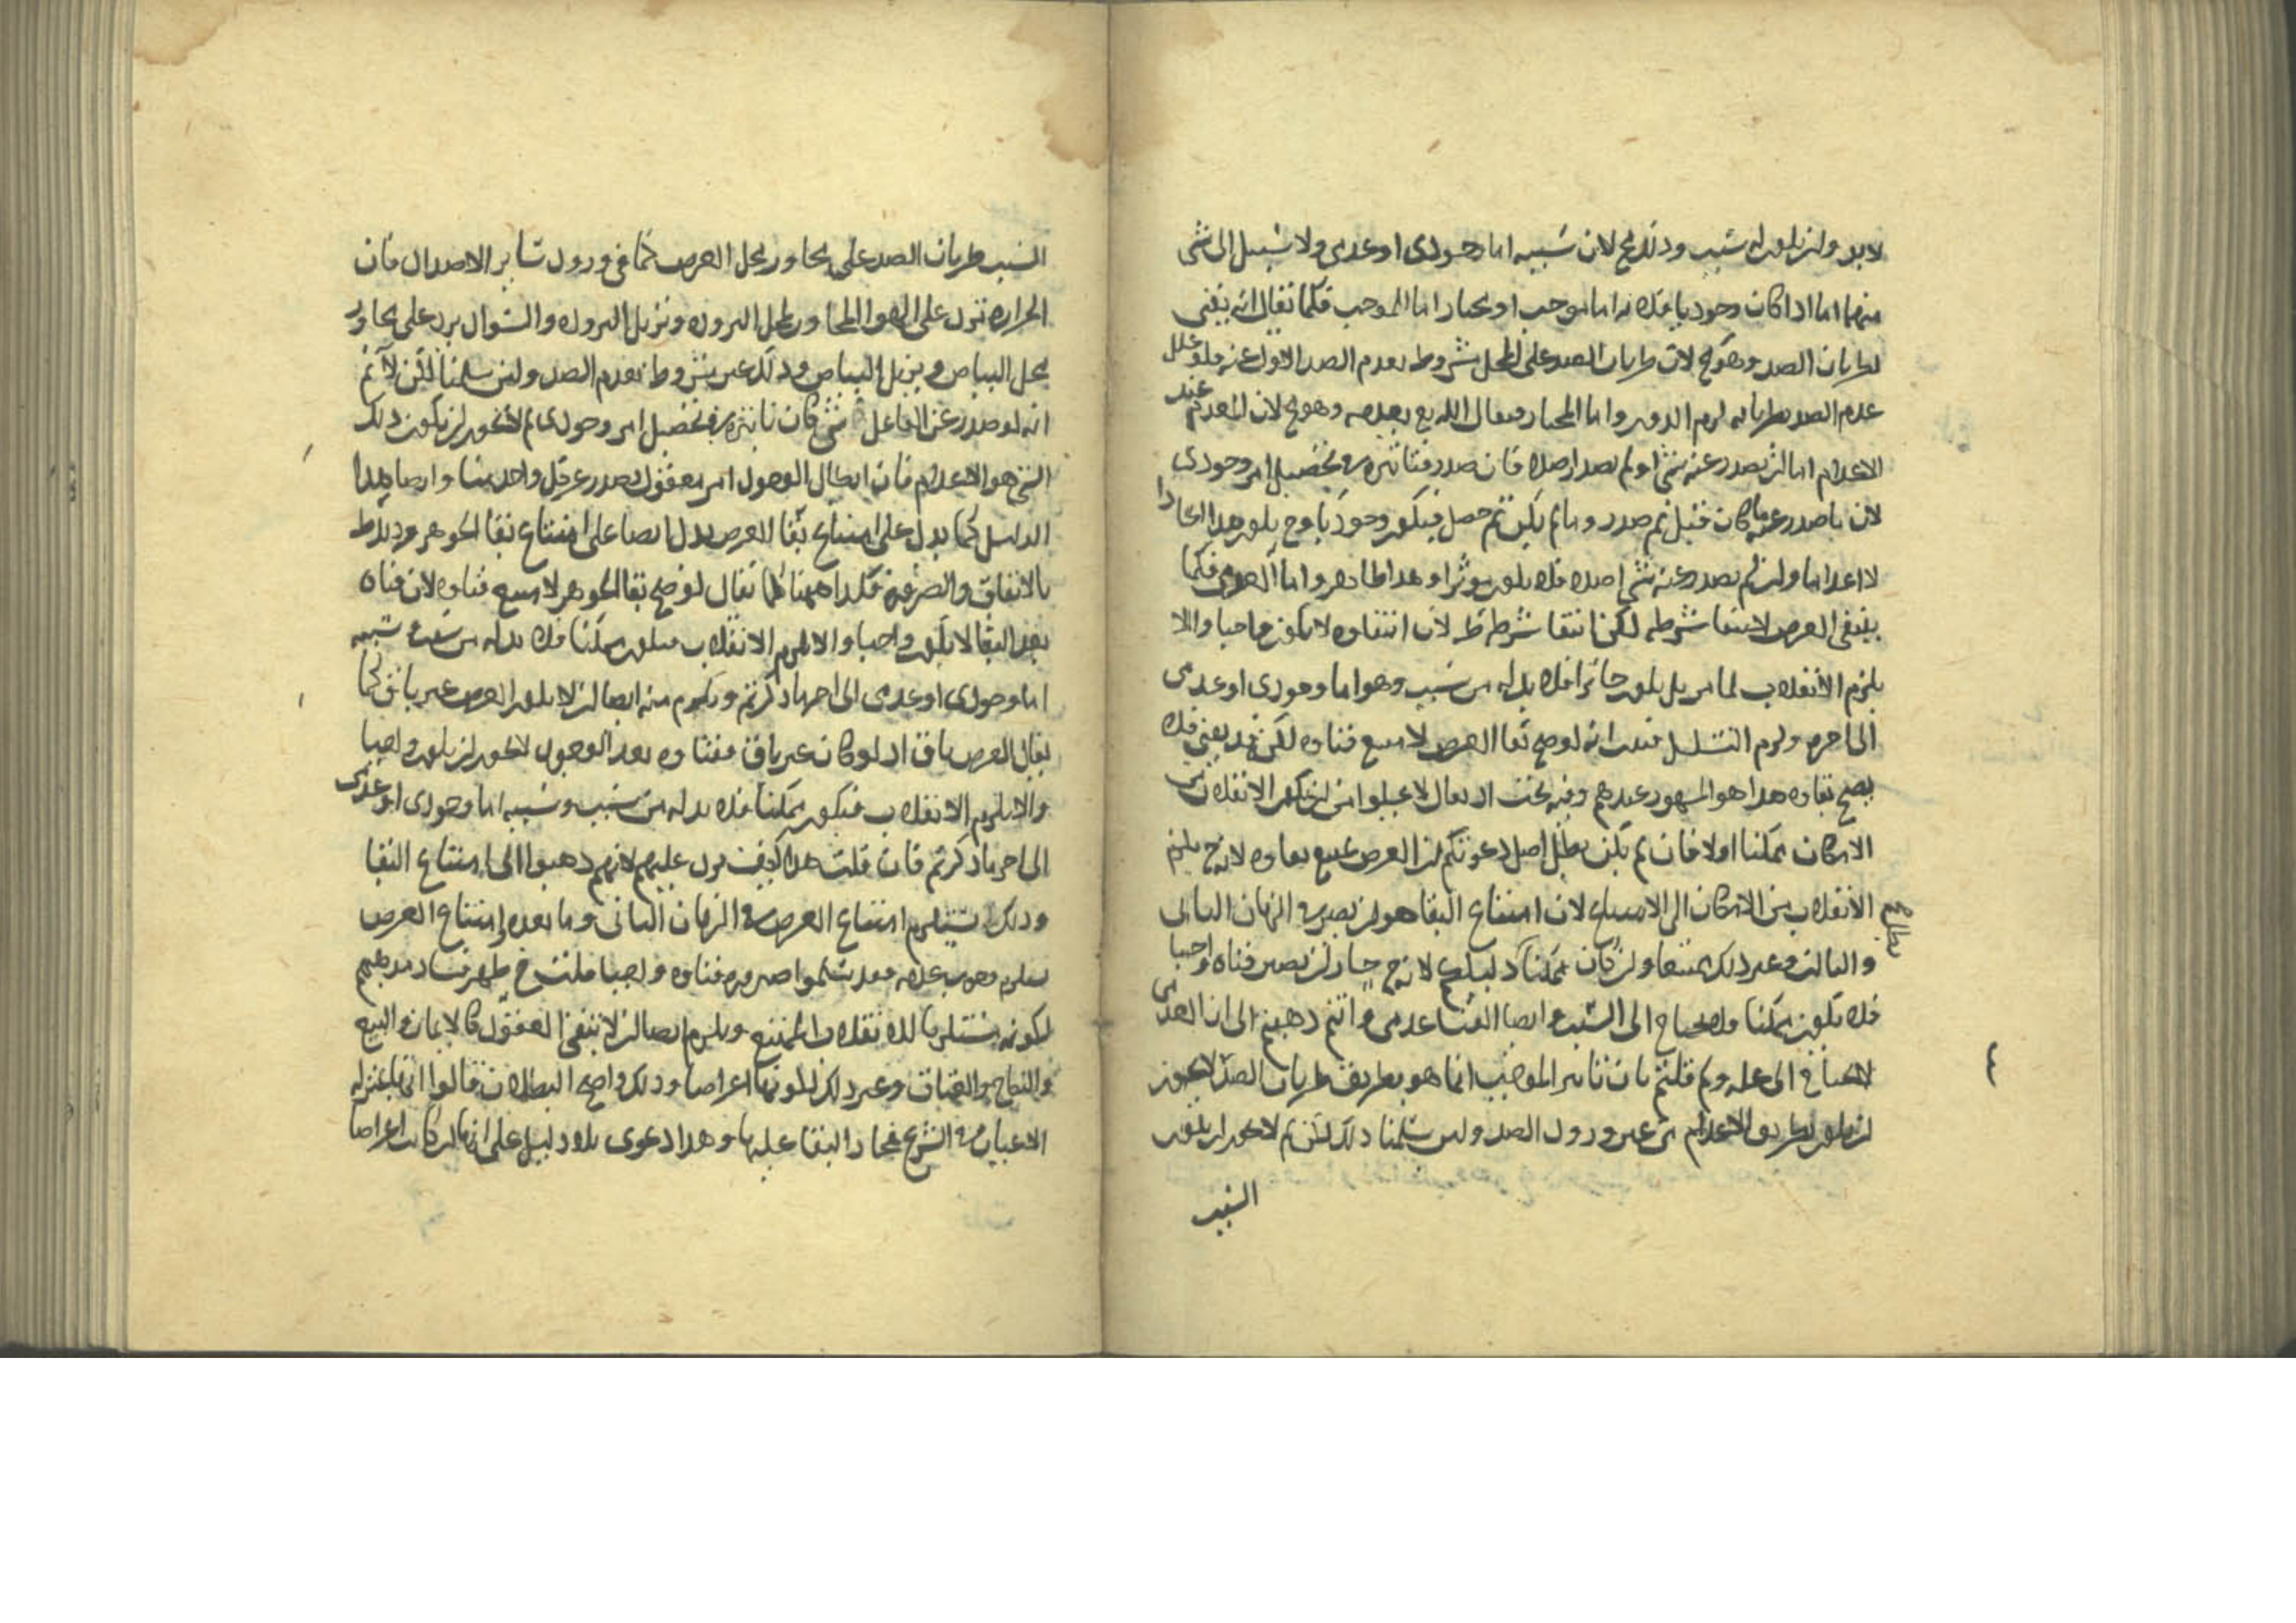 لابد وان يكون له سبب وذلك مح لان سببه اما وجودى او عدمى ولا سبيل الى شئ
منهما اما اذا كان وجوديا فلانه اما موجب او مختار اما الموجب فكما يقال انه يفنى
لطريان الضد وهو مح لان طريان الضد على المحل مشروط بعدم الضد الاول عنه فلو علل
عدم الضد بطريانه لزم الدور واما المختار فيقال الله تع يعدمه وهو مح لان المعدم عند
الاعدام اما ان يصدر عنه شئ او لم يصدر اصلا فان صدر فتاثيره فى تحصيل امر وجودى
لان ما صدر عنه ما كان قبل ثم صدر وما لم يكن ثم حصل فيكون وجوديا وح يكون هذا ايجادا
لا اعداما وان لم يصدر عنه شئ اصلا فلا يكون موثرا وهذا ظاهر واما العدمى فكما
ينتفى العرض لانتفا شرطه لكن انتفا شرطه لان انتفاوه لا يكون واجبا والا
يلزم الانقلاب لما مر بل يكون جائزا فلا بد له من سبب وهو اما وجودى او عدمى
الى اخره ولزم التسلسل فثبت انه لو صح بقا العرض لامتنع فناوه لكن قد يفنى فلا
يصح بقاوه هذا هو المشهور عندهم وفيه بحث اذ يقال لا
الامكان ممكنا اولا فان لم يكن بطل اصل دعوتكم ان العرض يمتنع بقاوه لانه ح يلزم
الانقلاب من الامكان الى الامتناع لان امتناع البقا هو ان يصير فى الزمان الثانى
والثالث وغير ذلك ممتنعا وان كان ممكنا دليلكم لانه ح جاز ان يصير فناه واجبا
فلا يكون ممكنا فلا يحتاج الى السبب وايضا الفنا عدمى وانتم ذهبتم الى ان العدمى
لا يحتاج الى علة ولم قلتم بان تاثير الموجب انما هو بطريق طريان الضد لا يجوز
ان يكون بطريق الاعدام من غير ورود الضد ولئن سلمنا ذلك لكن لم لا يجوز ان يكون
السبب
السبب طريان الضد على مجاور محل العرض كما فى ورود ساير الاضداد فان
الحرارة ترد على الهوا المجاور لمحل البرودة وتزيل البرودة والسواد يرد على مجاور
محل البياض ويزيل البياض وذلك غير مشروط بعدم الضد ولئن سلمنا لكن لا نم
انه لو صدر عن الفاعل شئ كان تاثيره فى تحصيل امر وجودى لم لا يجوز ان يكون ذلك
الشئ هو الاعدام فان ابطال الوجود امر معقول يصدر عن كل واحد منا وايضا هذا
الدليل كما يدل على امتناع بقا العرض يدل ايضا على امتناع بقا الجوهر وذلك بط
بالاتفاق والضرورة فكذا ههنا كما يقال لو صح بقا الجوهر لامتنع فناوه لان فناه
بعد البقا لا يكون واجبا والا يلزم الانقلاب فيكون ممكنا فلا بد له من سبب وسببه
اما وجودى او عدمى الى اخر ما ذكرتم ويلزم منه ايضا ان لا يكون العرض غير باق كما
يقال العرض باق اذ لو كان غير باق ففناوه بعد الوجود لا يجوز ان يكون واجبا
والا يلزم الانقلاب فيكون ممكنا فلا بد له من سبب وسببه اما وجودى او عدمى
الى اخر ما ذكرتم فان قلت هذا كيف يرد عليهم لانهم ذهبوا الى امتناع البقا
وذلك يستلزم امتناع العرض فى الزمان الثانى وما بعده وامتناع العرض
يستلزم وجوب عدمه فقد سلموا ضرورة فناوه واجبا قلت ح ظهر فساد مذهبهم
لكونه مستلزما للانقلاب الممتنع ويلزم ايضا ان لا يبقى العقود كالايمان والبيع
والنكاح والعتاق وغير ذلك لكونها اعراضا وذلك واضح البطلان قالوا انها بمنزلة
الاعيان فى الشرع فجاز البقا عليها وهذا دعوى بلا دليل على انها لو كانت اعراضا